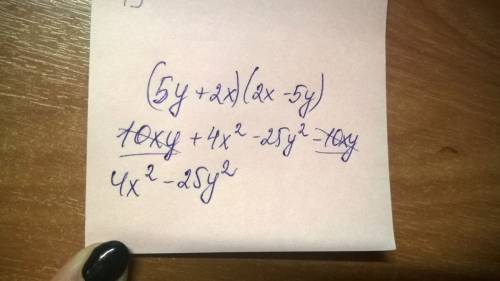 (5y + 2x)(2x - 5y)
10xy + 4x² - 25y² - 10xy
4x² - 25y²